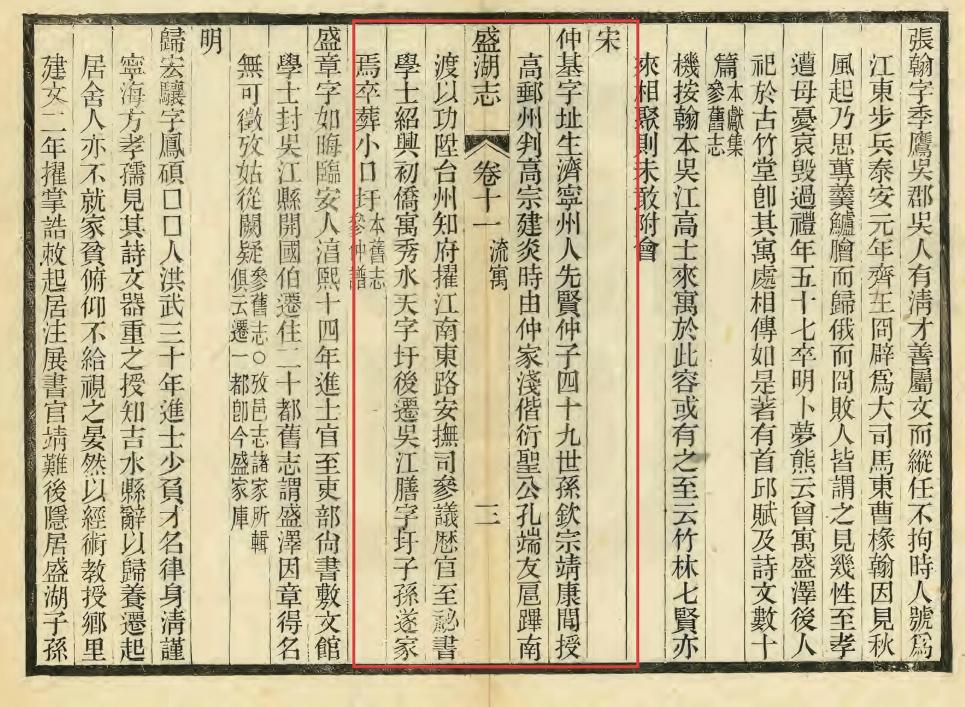 張翰字季鷹吳郡吳人有淸才善屬文而縱任不拘時人號爲
江東步兵泰安元年齊王冏辟爲大司馬東曹椽翰因見秋
風起乃思蓴羹鱸膾而歸俄而冏敗人皆謂之見幾性至孝
遭母憂哀毀過禮年五十七卒明卜夢熊云曾寓盛澤後人
祀於古竹堂卽其寓處相傳如是著有首邱賦及詩文數十
篇本獻集參舊志
機按翰本吳江高士來寓於此容或有之至云竹林七賢亦
來相聚則未敢附會
宋
仲基字址生濟寧州人先賢仲子四十九世孫欽宗靖康間授
高郵州判高宗建炎時由仲家淺偕衍聖公孔端友扈蹕南
盛湖志 卷十一 流寓 三
渡以功陞台州知府擢江南東路安撫司參議歷官至祕書
學士紹興初僑寓秀水天字圩後遷吳江膳字圩子孫遂家
焉卒葬小口圩本舊志參仲譜
盛章字如晦臨安人淳熙十四年進士官至吏部尙書敷文館
學士封吳江縣開國伯遷住二十都舊志謂盛澤因章得名
無可徵攷姑從闕疑參舊志○攷邑志諸家所輯俱云遷一都卽今盛家庫
明
歸宏驤字鳳碩口口人洪武三十年進士少負才名律身淸謹
寧海方孝孺見其詩文器重之授知吉水縣辭以歸養遷起
居舍人亦不就家貧俯仰不給視之晏然以經術教授鄉里
建文二年擢掌誥敕起居注展書官靖難後隱居盛湖子孫